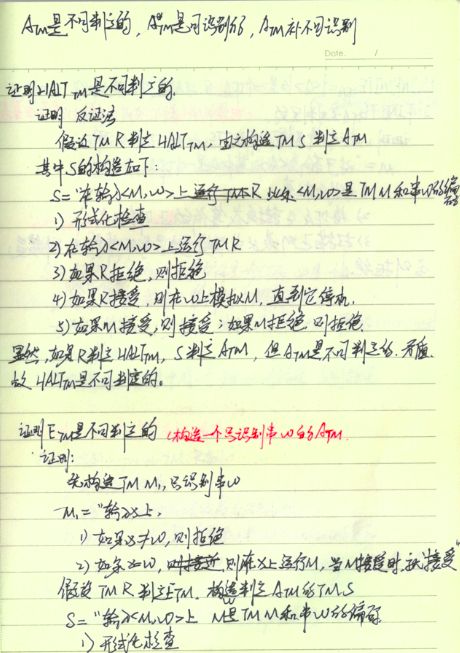 ATM是不可判定的, ATM是可识别的, ATM补不可识别
Date. /
证明HALTTM是不可判定的
证明 反证法
假设TM R判定HALTTM, 由之构造TM S判定ATM
其中S的构造如下:
S="在输入<M,w>上 此处<M,w>是TM M和串w的编码
1) 形式化检查
2) 在输入<M,w>上运行TM R
3) 如果R拒绝, 则拒绝
4) 如果R接受, 则在w上模拟M, 直到它停机.
5) 如果M接受, 则接受; 如果M拒绝, 则拒绝.
显然, 如果R判定HALTTM, S判定ATM, 但ATM是不可判定的, 矛盾.
故HALTTM是不可判定的。
证明ETM是不可判定的 (构造一个只识别串w的ATM.
证明:
先构造TM M1, 只识别串w
M1="输入x上.
1) 如果x≠w, 则拒绝
2) 如果x=w, 则在x上运行M, 当M接受时, 就"接受"
假设TM R判定ETM, 构造判定ATM的TM S
S="输入<M,w>上 M是TM M和串w的编码
1) 形式化检查